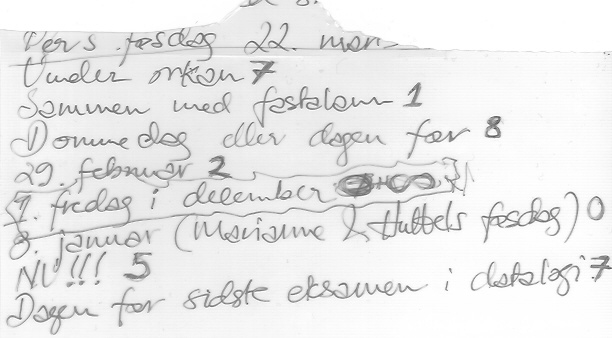 Vers føsdag 22. mar
Under orkan 7
Sammen med fastelavn 1
Dommedag eller dagen før 8
29. februar 2
1. fredag i december
8. januar (Marianne & Hubbels føsdag) 0
NU!!! 5
Dagen før sidste eksamen i datalogi 7